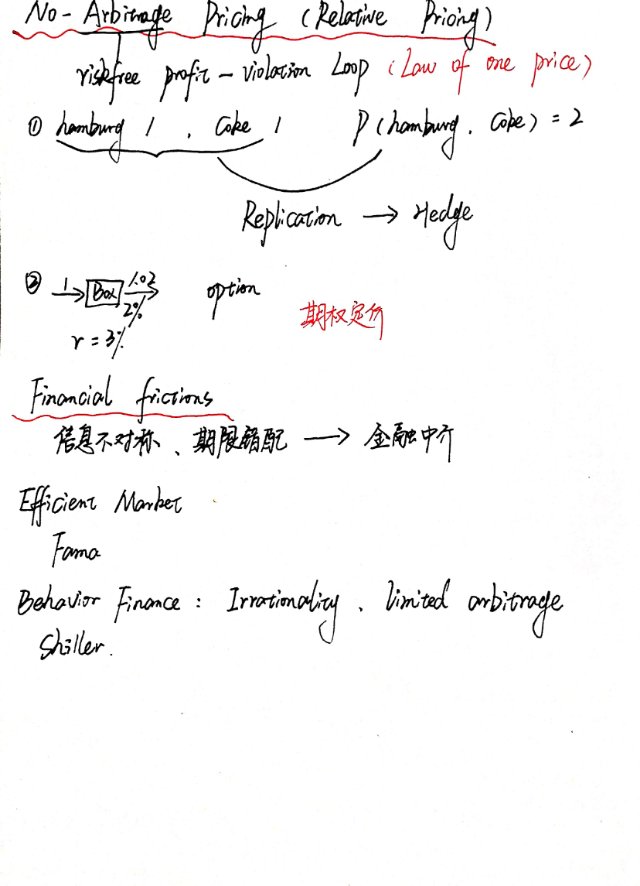 No-Arbitrage Pricing (Relative Pricing)
riskfree profit - violation Loop (Law of one price)
① hamburg 1, Coke 1 P(hamburg, Coke) = 2
Replication → Hedge
② 1 → Box 1.02 → option
2%
期权定价
r = 3%
Financial frictions
信息不对称、期限错配 → 金融中介
Efficient Market
Fama
Behavior Finance: Irrationality, limited arbitrage
Shiller.